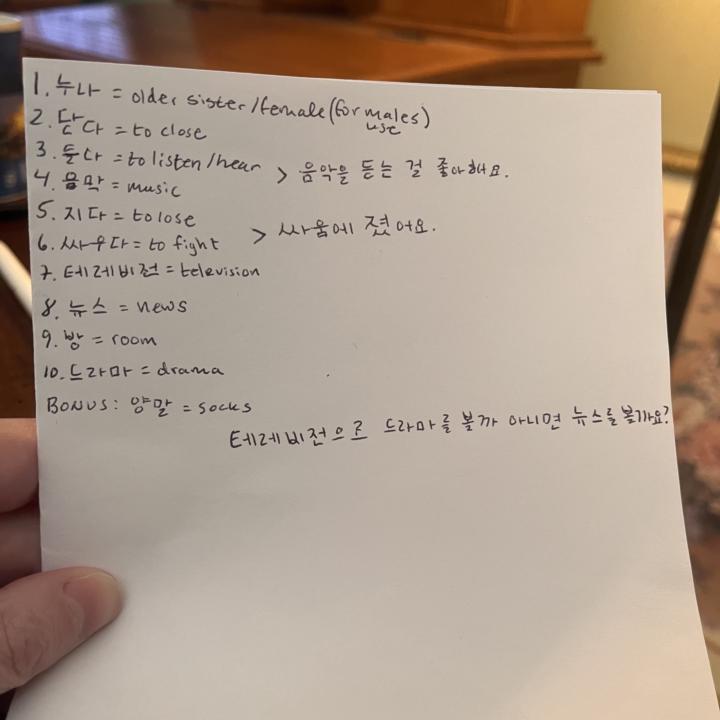 1. 누나 = older sister/female (for males)
use
2. 닫다 = to close
3. 듣다 = to listen/hear > 음악을 듣는 걸 좋아해요.
4. 음막 = music
5. 지다 = to lose
6. 싸우다 = to fight > 싸움에 졌어요.
7. 테레비전 = television
8. 뉴스 = news
9. 방 = room
10. 드라마 = drama
BONUS: 양말 = socks
테레비전으로 드라마를 볼까 아니면 뉴스를 볼까요?